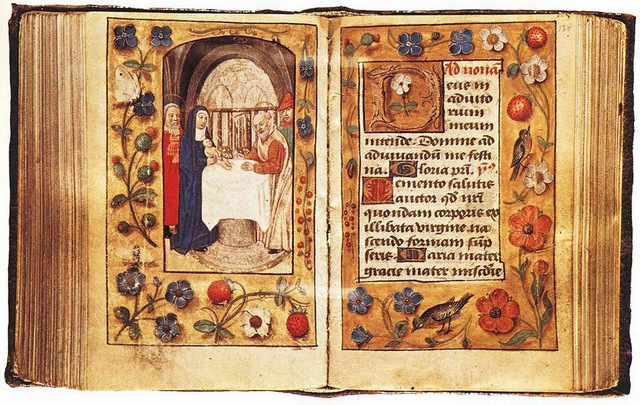 Ad nonā
Deus in
adiuto
rium
meum
intende. Domine ad
adiuuandū me festi
na. Gloria pri.
Memento salutis
auctor qd nri
quondam corporis ex
illibata virgine na
scendo formam sūp
seris. Maria mater
gracie mater